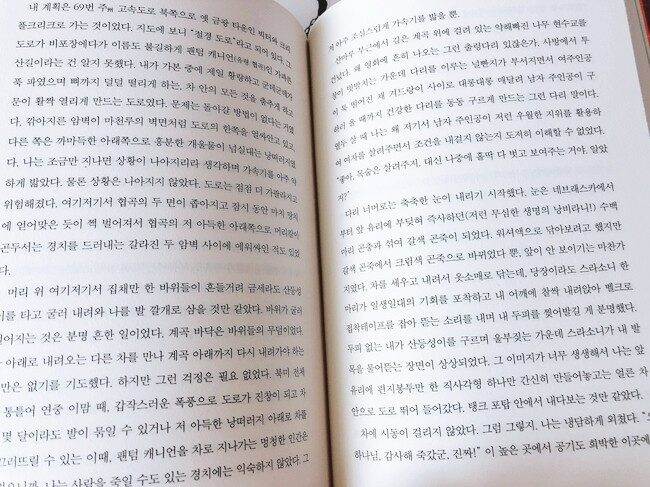 내 계획은 69번 주州 고속도로 북쪽으로 옛 금광 타운인 빅터와 크리
플크리크로 가는 것이었다. 지도에 보니 “절경 도로”라고 되어 있다. 그
도로가 비포장에다가 이름도 불길하게 팬텀 캐니언(유령 협곡)인 가파른
산길이라는 건 알지 못했다. 내가 가본 중에 제일 황량하고 군데군데가
푹 파였으며 뼈까지 덜덜 떨리게 하는, 차 안의 모든 것을 춤추게 하고
문이 활짝 열리게 만드는 도로였다. 문제는 돌아갈 방법이 없다는 거였
다. 깎아지른 암벽이 마천루의 벽면처럼 도로의 한쪽을 열싸안고 있고,
다른 쪽은 까마득한 아래쪽으로 흥분한 개울물이 넘실대는 낭떠러지였
다. 나는 조금만 지나면 상황이 나아지리라 생각하며 가속기를 아주 약
하게 밟았다. 물론 상황은 나아지지 않았다. 도로는 점점 더 가팔라지고
위험해졌다. 여기저기서 협곡의 두 면이 좁아지고 잠시 동안 마치 망치
에 얻어맞은 듯이 쩍 벌어져서 협곡의 저 아득한 아래쪽으로 머리끝이
곤두서는 경치를 드러내는 갈라진 두 암벽 사이에 에워싸인 적도 있었
다.
머리 위 여기저기서 집채만 한 바위들이 흔들거려 금세라도 산등성
이를 타고 굴러 내려와 나를 발 깔개로 삼을 것만 같았다. 바위가 굴러
떨어지는 것은 분명 흔한 일이었다. 계곡 바닥은 바위들의 무덤이었다.
아래로 내려오는 다른 차를 만나 계곡 아래까지 다시 내려가야 하는
만은 없기를 기도했다. 하지만 그런 걱정은 필요 없었다. 북미 전체
통틀어 연중 이맘 때, 갑작스러운 폭풍으로 도로가 진창이 되고 차
몇 달이라도 발이 묶일 수 있거나 저 아득한 낭떠러지 아래로 차를
뜨러뜨릴 수 있는 이때, 팬텀 캐니언을 차로 지나가는 멍청한 인간은
없으니까. 나는 사람을 죽일 수도 있는 경치에는 익숙하지 않았다. 그
저 아주 조심스럽게 가속기를 밟을 뿐.
산마루 부근에서 깊은 계곡 위에 걸려 있는 약해빠진 나무 현수교를
건넜다. 왜 영화에 흔히 나오는 그런 출렁다리 있잖은가. 사방에서 두
꺼비 빗발치는 가운데 다리를 이루는 널빤지가 부서지면서 여주인공
이 툭 떨어진 채 겨드랑이 사이로 대롱대롱 매달려 남자 주인공이 구
하러 올 때까지 건강한 다리를 동동 구르게 만드는 그런 다리 말이다.
열두 살 때 나는 왜 저기서 남자 주인공이 저런 우월한 지위를 활용하
여 여자를 살려주면서 조건을 내걸지 않는지 도저히 이해할 수 없었다.
“좋아, 목숨은 살려주지, 대신 나중에 홀딱 다 벗고 보여주는 거야, 알았
지?”
다리 너머로는 축축한 눈이 내리기 시작했다. 눈은 네브래스카에서
부터 앞 유리에 부딪혀 즉사하던(저런 무심한 생명의 낭비라니!) 수백
마리 곤충과 섞여 갈색 곤죽이 되었다. 워셔액으로 닦아보려고 했지만
갈색 곤죽에서 크림색 곤죽으로 바뀌었다 뿐, 앞이 안 보이기는 마찬가
지였다. 차를 세우고 내려서 옷소매로 닦는데, 당장이라도 스라소니 한
마리가 일생일대의 기회를 포착하고 내 어깨에 찰싹 내려앉아 벨크로
접착테이프를 잡아 뜯는 소리를 내며 내 두피를 찢어발길 게 분명했다.
두피 없는 내가 산등성이를 구르며 울부짖는 가운데 스라소니가 내 발
목을 물어뜯는 장면이 상상되었다. 그 이미지가 너무 생생해서 나는 앞
유리에 편지봉투만 한 직사각형 하나만 간신히 만들어놓고는 얼른 차
안으로 도로 뛰어 들어갔다. 탱크 포탑 안에서 내다보는 것만 같았다.
차에 시동이 걸리지 않았다. 그럼 그렇지. 나는 냉담하게 외쳤다. “오
하나님, 감사해 죽겠군, 진짜!” 이 높은 곳에서 공기도 희박한 이곳에